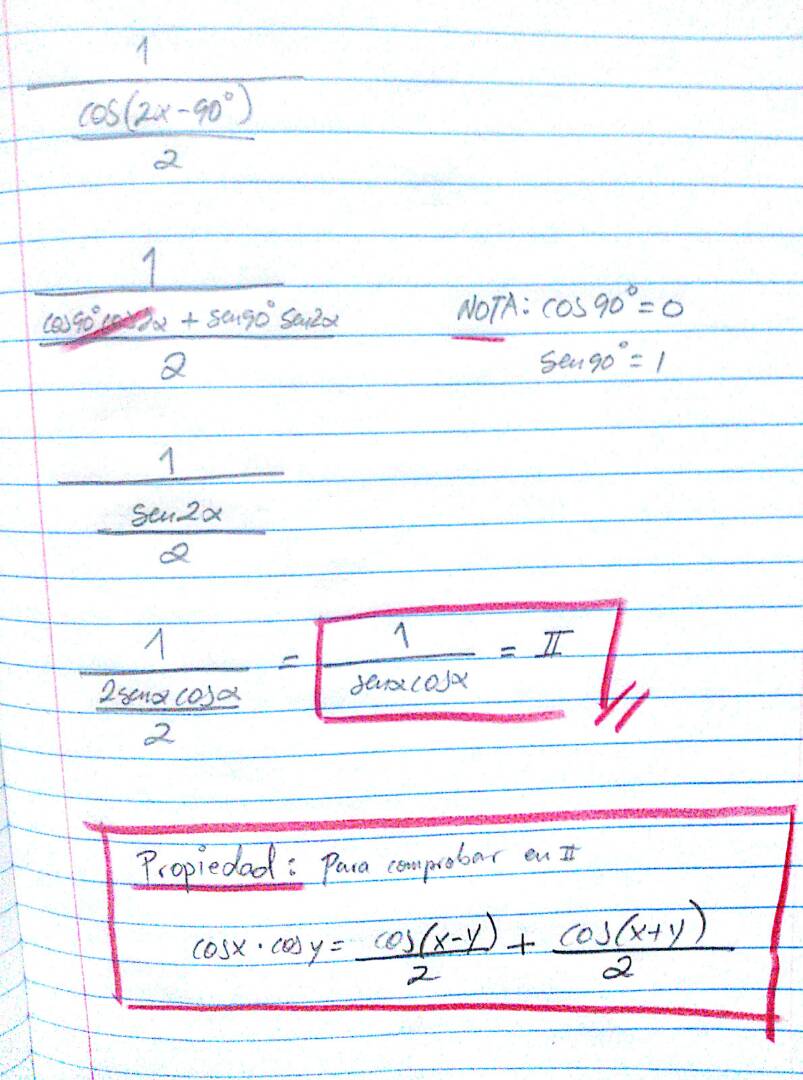 1
cos(2x-90°)
2
1
cos90°cos2x + sen90° sen2x
2
NOTA: cos90°=0
sen90°=1
1
sen2x
2
1
2senxcosx
2
=
1
senxcosx
= II
Propiedad: Para comprobar en II
cosx·cosy= cos(x-y)/2 + cos(x+y)/2